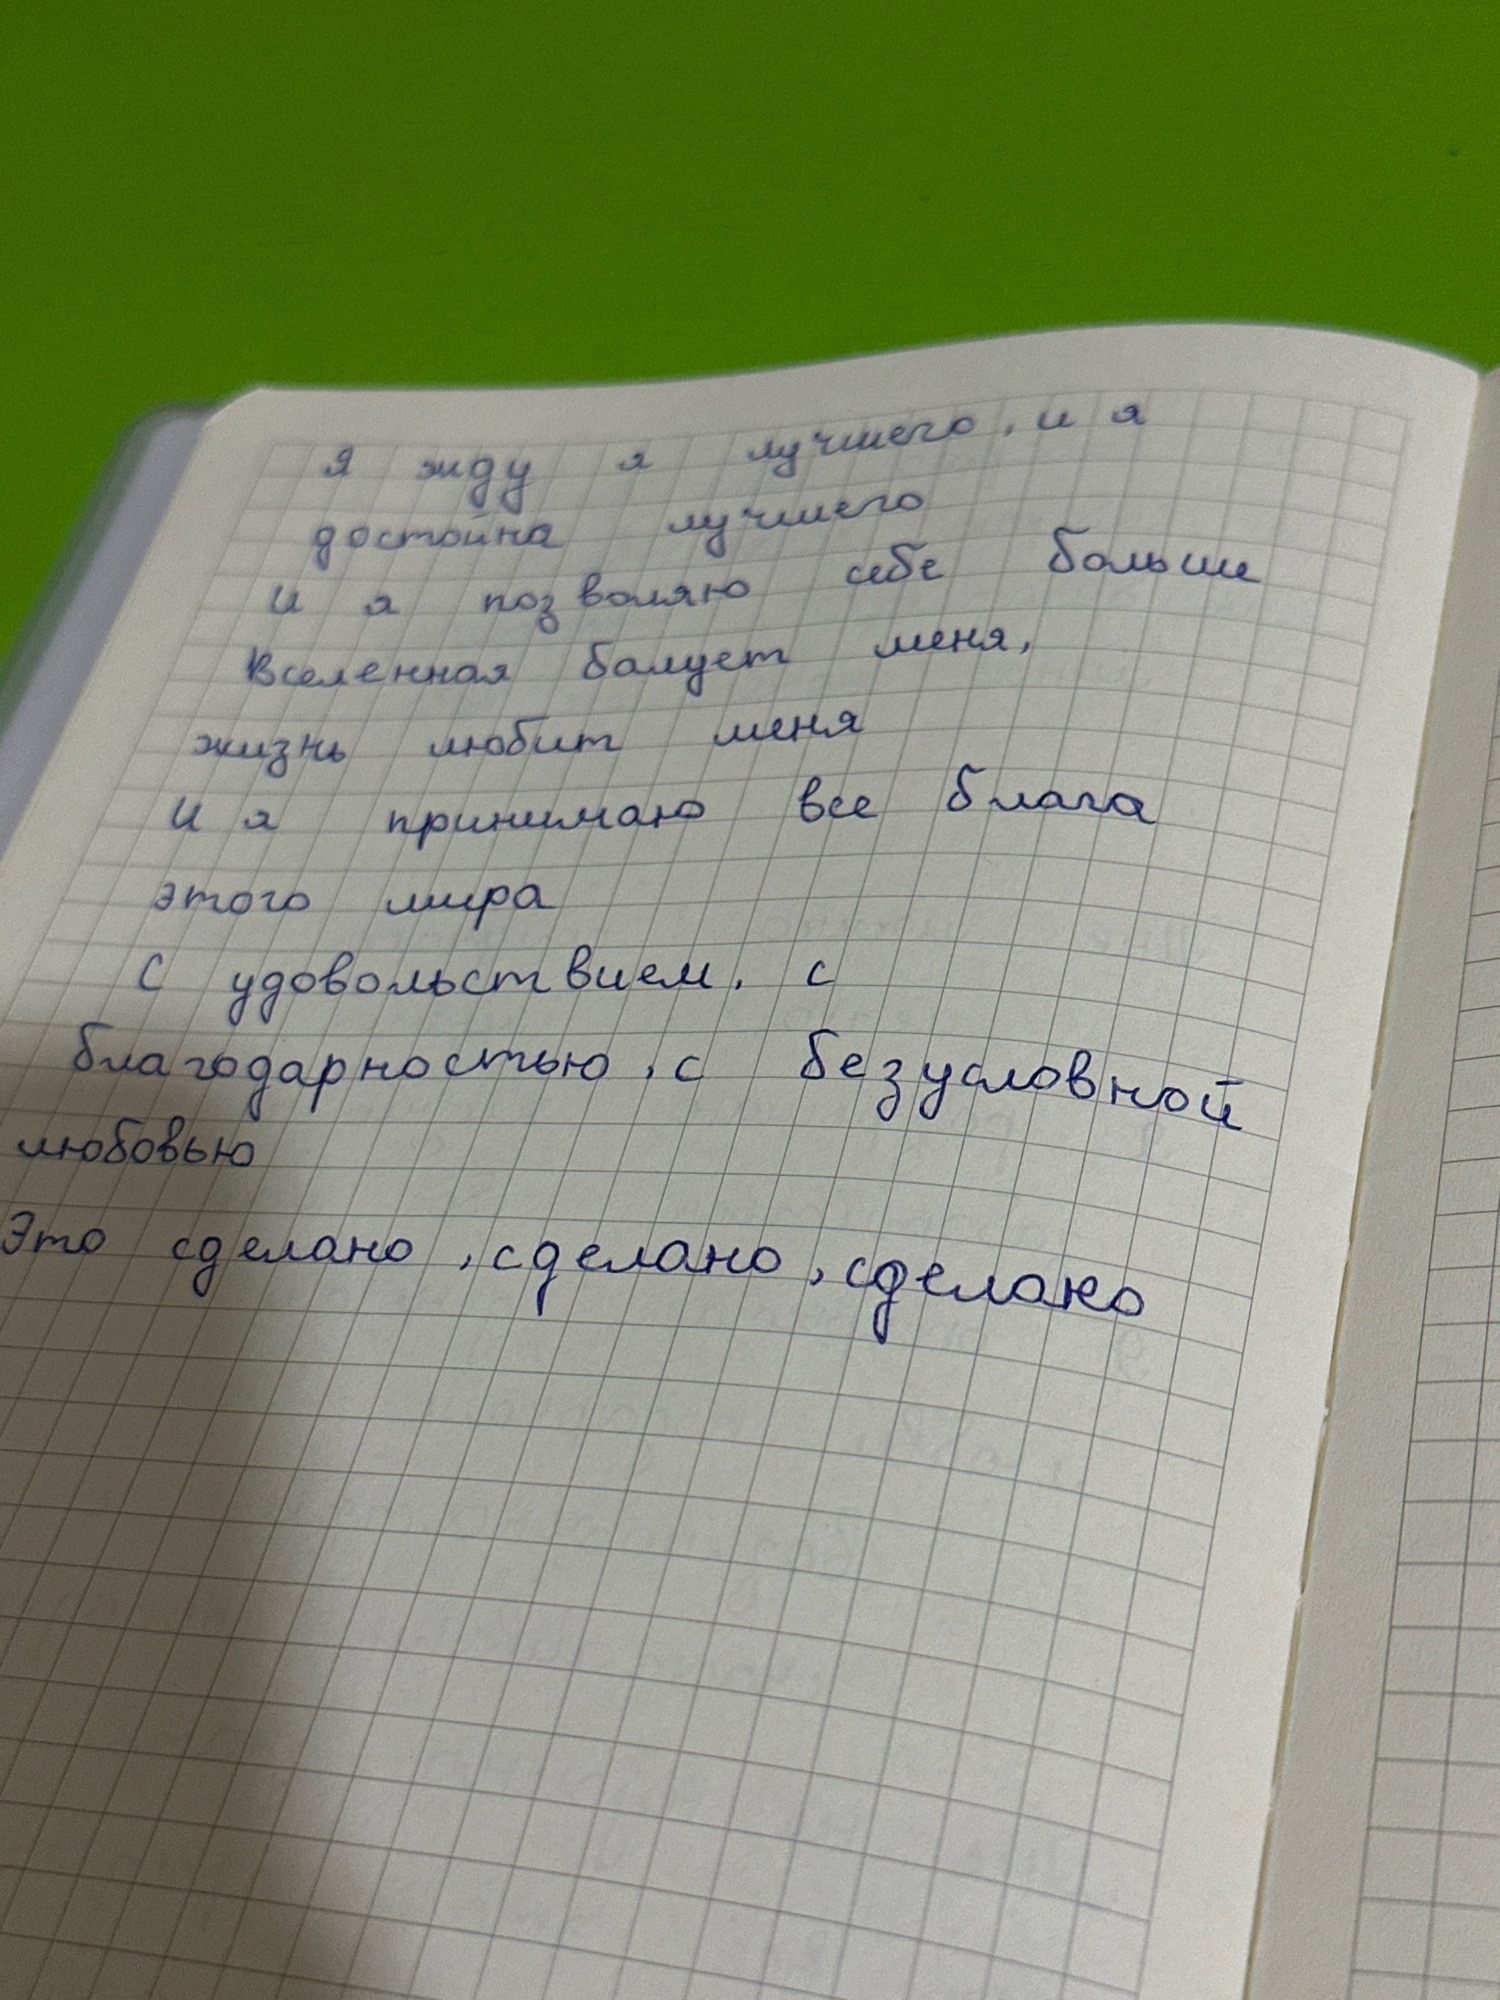 Я жду я лучшего, и я
достойна лучшего
И я позволяю себе больше
Вселенная балует меня,
жизнь любит меня
И я принимаю все блага
этого мира
С удовольствием, с
благодарностью, с безусловной
любовью
Это сделано, сделано, сделано